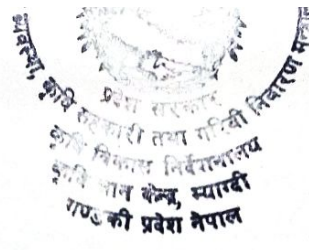 प्रदेश सरकार
व्यवस्था, कृषि सहकारी तथा गरिबी निवारण
कृषि विकास निर्देशनालय
कृषि ज्ञान केन्द्र, म्यागदी
गण्डकी प्रदेश नेपाल